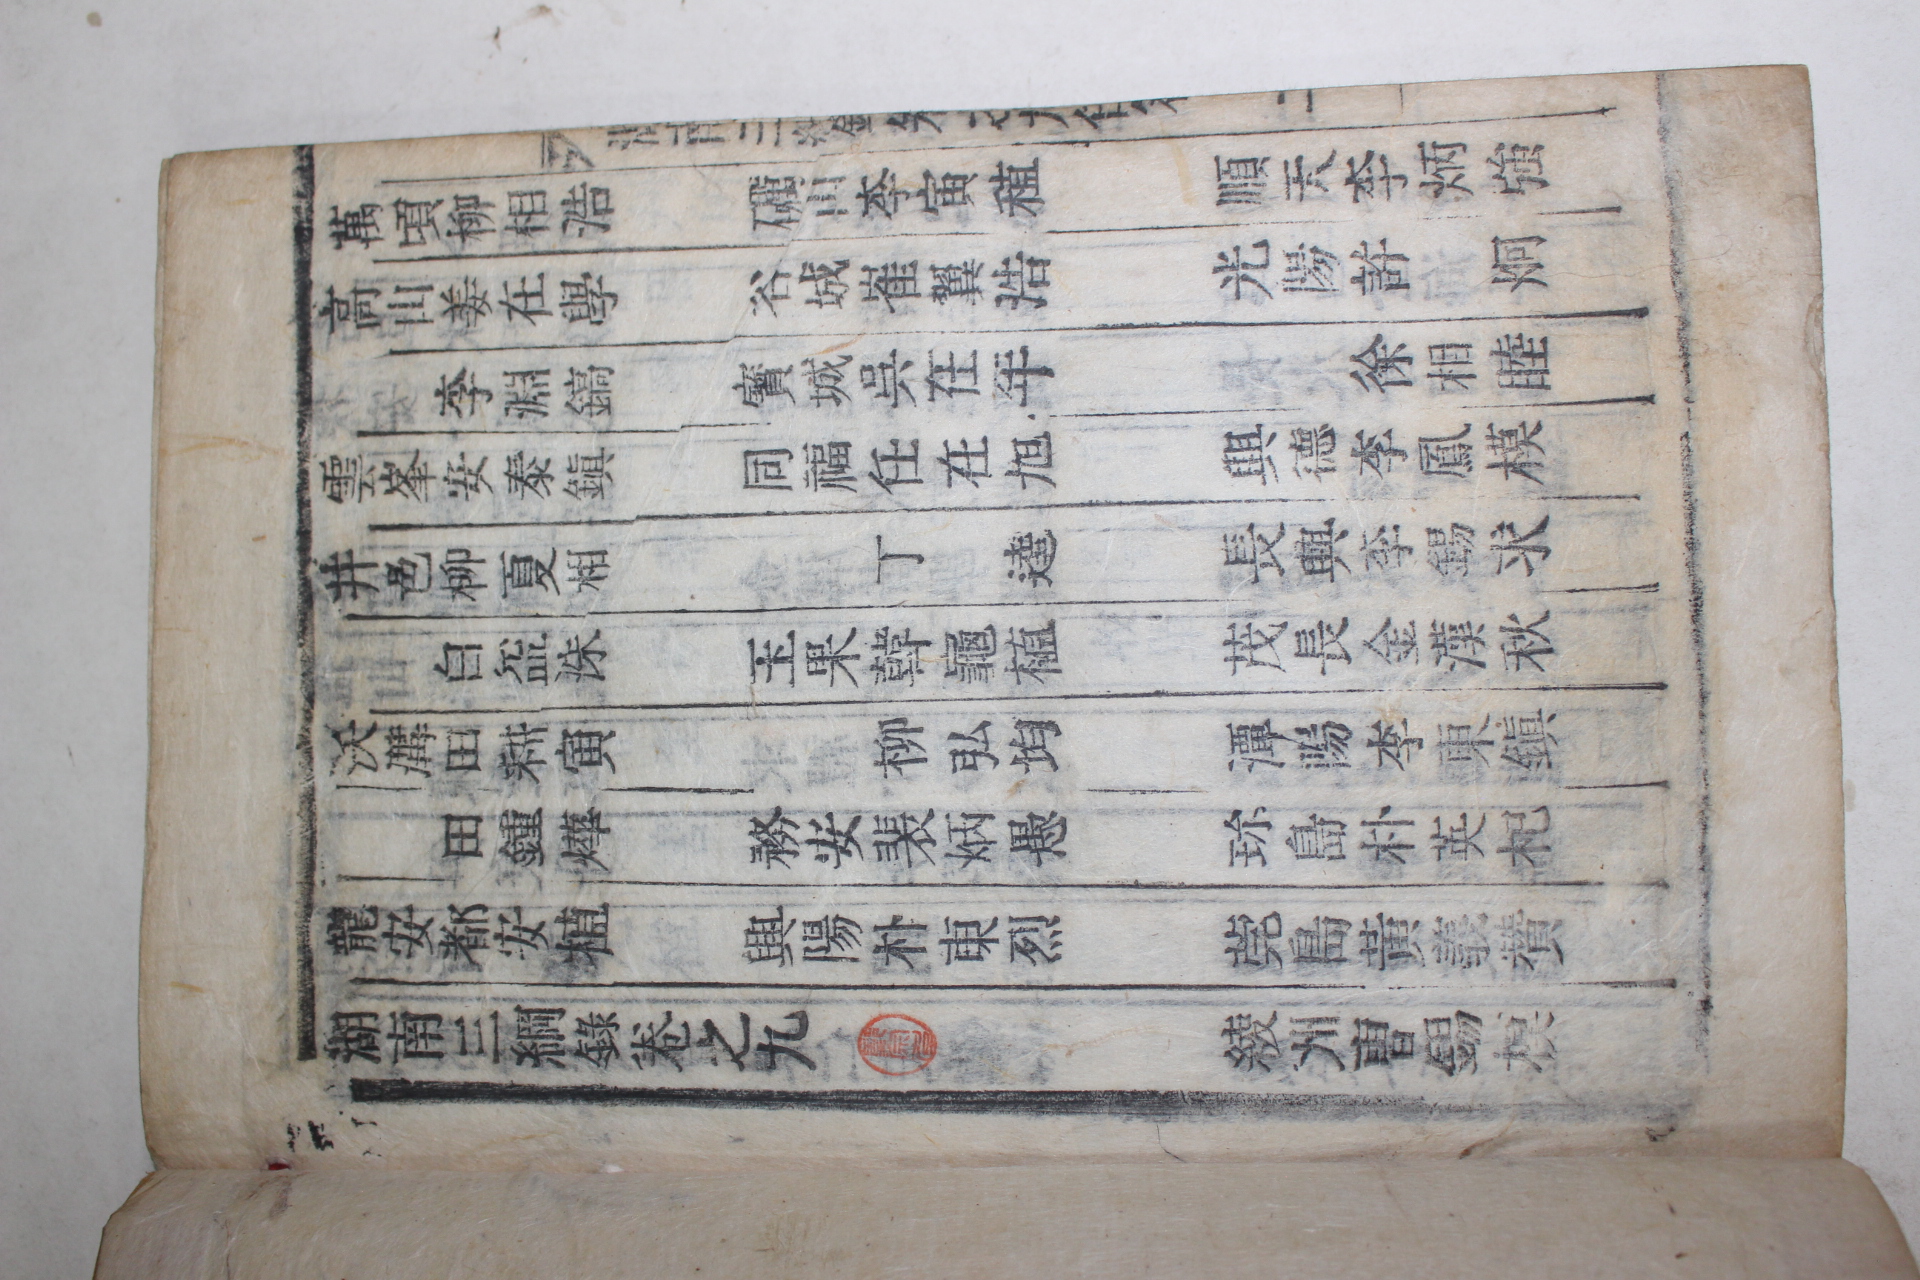 湖南三綱錄卷之九 綾州曺錫模
龍安都安植 興陽朴東烈 莞島黃義瓚
田鍾燁 務安裴炳愚 珍島朴英杞
沃溝田耕寅 柳弘均 潭陽李東鎭
白 洙 玉果韓龜植 茂長金漢秋
井邑柳夏相 丁 長興李錫求
雲峯安泰鎭 同福任在旭 興德李鳳模
李淵鎬 寶城吳在年 徐相睦
高山姜在學 谷城崔翼浩 光陽許炯
萬頃柳相浩 礪山李寅稙 順天李炳強